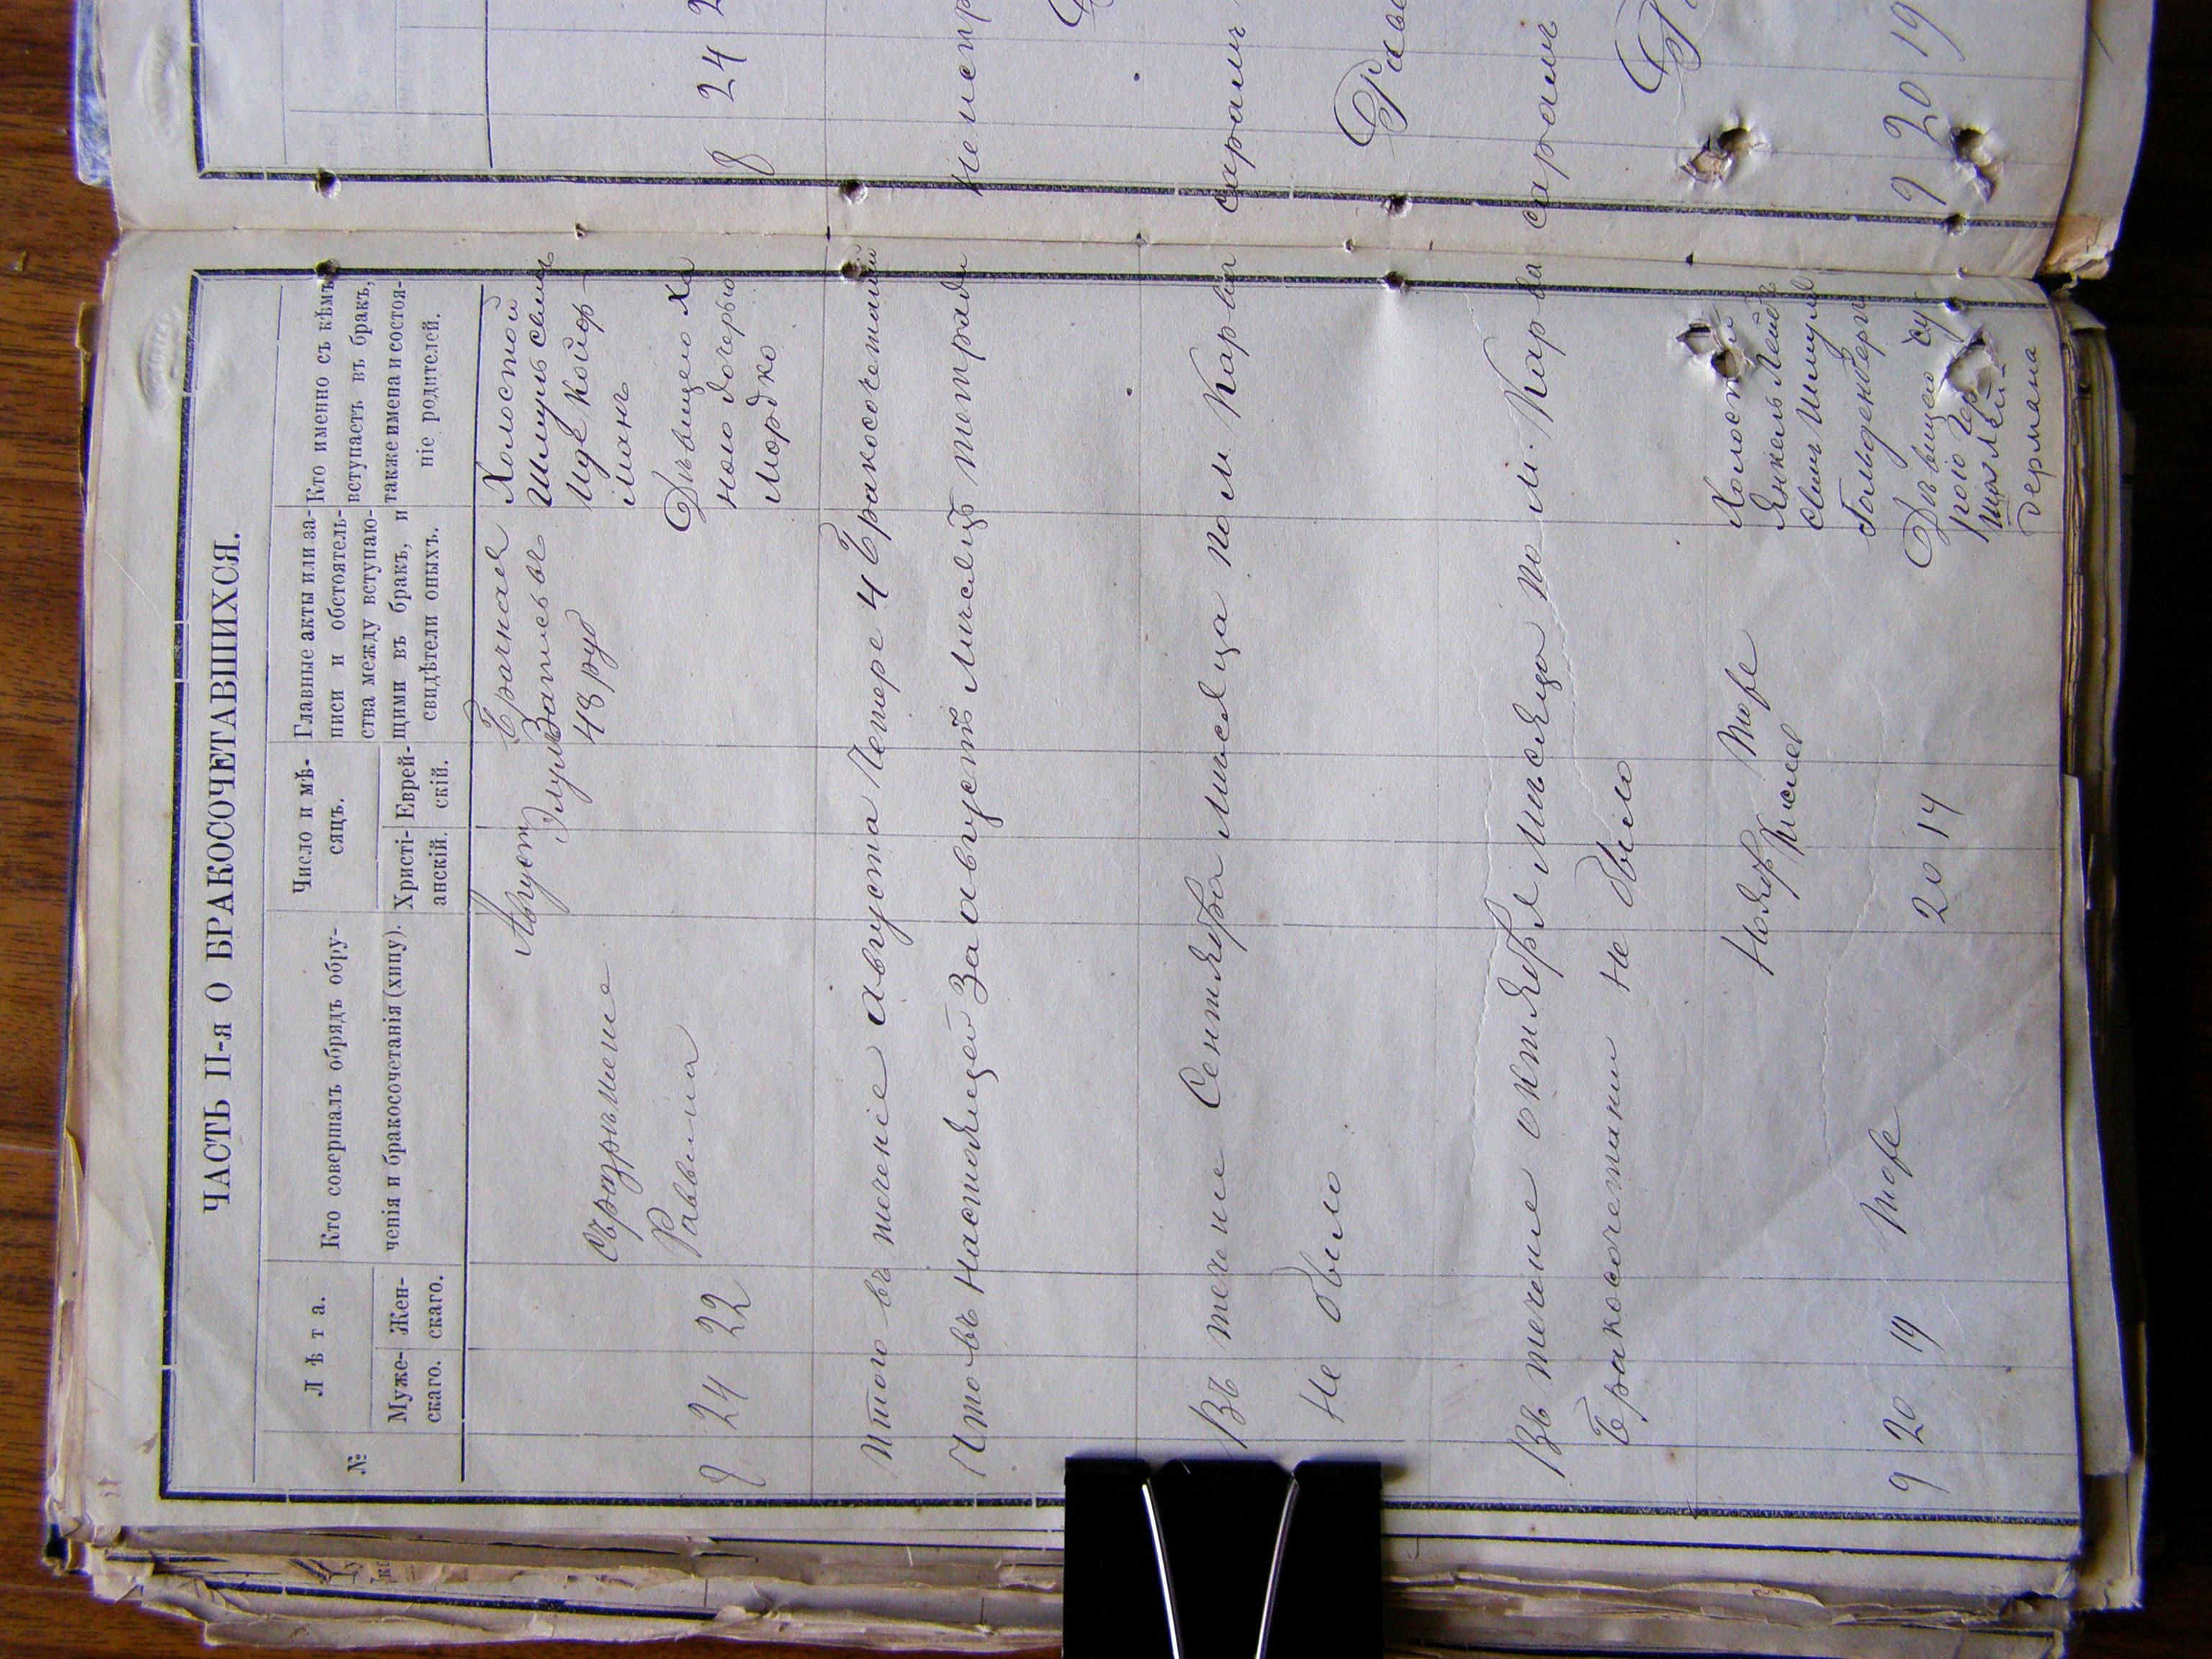 ЧАСТЬ II-я О БРАКОСОЧЕТАВШИХСЯ.
№
Лѣта.
Муже-
скаго.
Жен-
скаго.
Кто совершалъ обрядъ обру-
ченія и бракосочетанія (хипу).
Число и мѣ-
сяцъ.
Христі-
анскій.
Еврей-
скій.
Главные акты или за-
писи и обстоятель-
ства между вступаю-
щими въ бракъ, и
свидѣтели оныхъ.
Кто именно съ кѣмъ
вступаетъ въ бракъ,
также имена и состоя-
ніе родителей.
24 22
Раввина
Август
Брачная
Запись въ
48 руб
Холостой
Шмуль сынъ
Иде Койф-
манъ
Дѣвицею Ха
ною дочерью
Мордко
Итого въ теченіе Августа 4 Бракосочетаній
Что въ настоящей За августъ Мѣсяцъ тетради
Въ течение Сентября Мѣсяца по м. Карва
Не было
Въ течение октября Мѣсяца по м. Карва
Бракосочетании Не было
9 20 19
тоже
Ноябр
Кислев
20 14
тоже
Янкель Лейб
сынъ Шмуля
Гольденберг
Дѣвицею Су
дермана
8 24
сараль
сараль
9 20 19